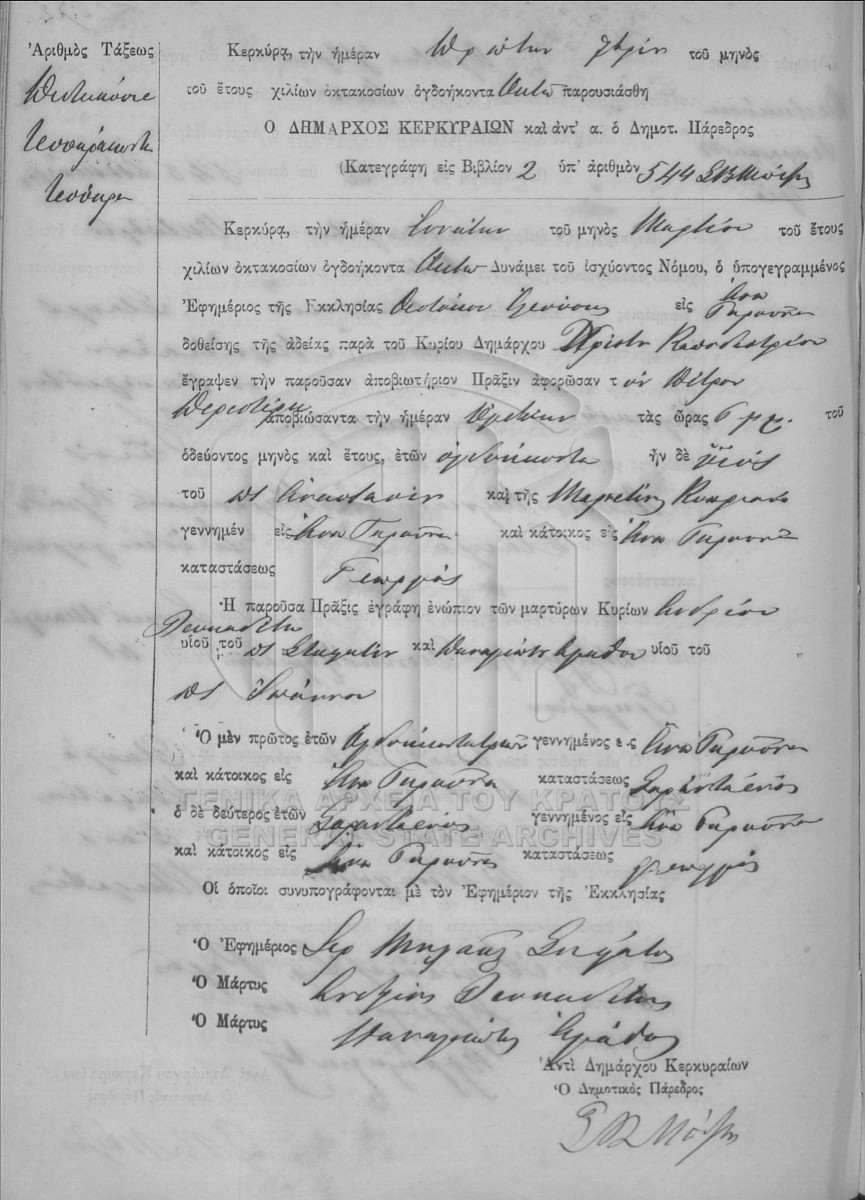 Ἀριθμὸς Τάξεως
Πεντακόσια
τεσσαράκοντα
τέσσαρα
Κερκύρᾳ, τὴν ἡμέραν Πρώτην τοῦ μηνὸς
τοῦ ἔτους χιλίων ὀκτακοσίων ὀγδοήκοντα Ὀκτὼ παρουσιάσθη
Ο ΔΗΜΑΡΧΟΣ ΚΕΡΚΥΡΑΙΩΝ καὶ ἀντ' α. ὁ Δημοτ. Πάρεδρος
(Κατεγράφη εἰς Βιβλίον 2 ὑπ' ἀριθμὸν 544
Κερκύρᾳ, τὴν ἡμέραν Ἐννάτην τοῦ μηνὸς Μαρτίου τοῦ ἔτους
χιλίων ὀκτακοσίων ὀγδοήκοντα Ὀκτὼ Δυνάμει τοῦ ἰσχύοντος Νόμου, ὁ ὑπογεγραμμένος
Ἐφημέριος τῆς Εκκλησίας Θεοτόκου εἰς Ἄνω Γαρούνα
δοθείσης τῆς ἀδείας παρὰ τοῦ Κυρίου Δημάρχου Χρίστου Καποδιστρίου
ἔγραψεν τὴν παροῦσαν ἀποβιωτήριον Πρᾶξιν ἀφορῶσαν τ ὸν Πέτρον
ἀποβιώσαντα τὴν ἡμέραν Ὀγδόην τὰς ὥρας 6 μ.μ. τοῦ
ὁδεύοντος μηνὸς καὶ ἔτους, ἐτῶν ὀγδοήκοντα ἦν δὲ υἱός
τοῦ πτ Ἀναστασίου καὶ τῆς
γεννημέν εἰς Ἄνω Γαρούνα καὶ κάτοικος εἰς Ἄνω Γαρούνα
καταστάσεως Γεωργός
Ἡ παροῦσα Πρᾶξις ἐγράφη ἐνώπιον τῶν μαρτύρων Κυρίων Ἀνδρέου
Λευκαδίτη
υἱοῦ τοῦ πτ Σταματίου καὶ Παναγιώτη Γράθου υἱοῦ τοῦ
πτ Ἰωάννου
Ὁ μὲν πρῶτος ἐτῶν γεννημένος εἰς Ἄνω Γαρούνα
καὶ κάτοικος εἰς Ἄνω Γαρούνα καταστάσεως
ὁ δὲ δεύτερος ἐτῶν Σαράντα ἑνός γεννημένος εἰς Ἄνω Γαρούνα
καὶ κάτοικος εἰς Ἄνω Γαρούνα καταστάσεως γεωργός
Οἱ ὁποῖοι συνυπογράφονται μὲ τὸν Ἐφημέριον τῆς Ἐκκλησίας
Ὁ Ἐφημέριος Ἱερ Μιχαὴλ
Ὁ Μάρτυς Ἀνδρέας Λευκαδίτης
Ὁ Μάρτυς Παναγιώτης Γράθος
Ἀντὶ Δημάρχου Κερκυραίων
Ὁ Δημοτικὸς Πάρεδρος
ΓΕΝΙΚΑ ΑΡΧΕΙΑ ΤΟΥ ΚΡΑΤΟΥΣ
GENERAL STATE ARCHIVES